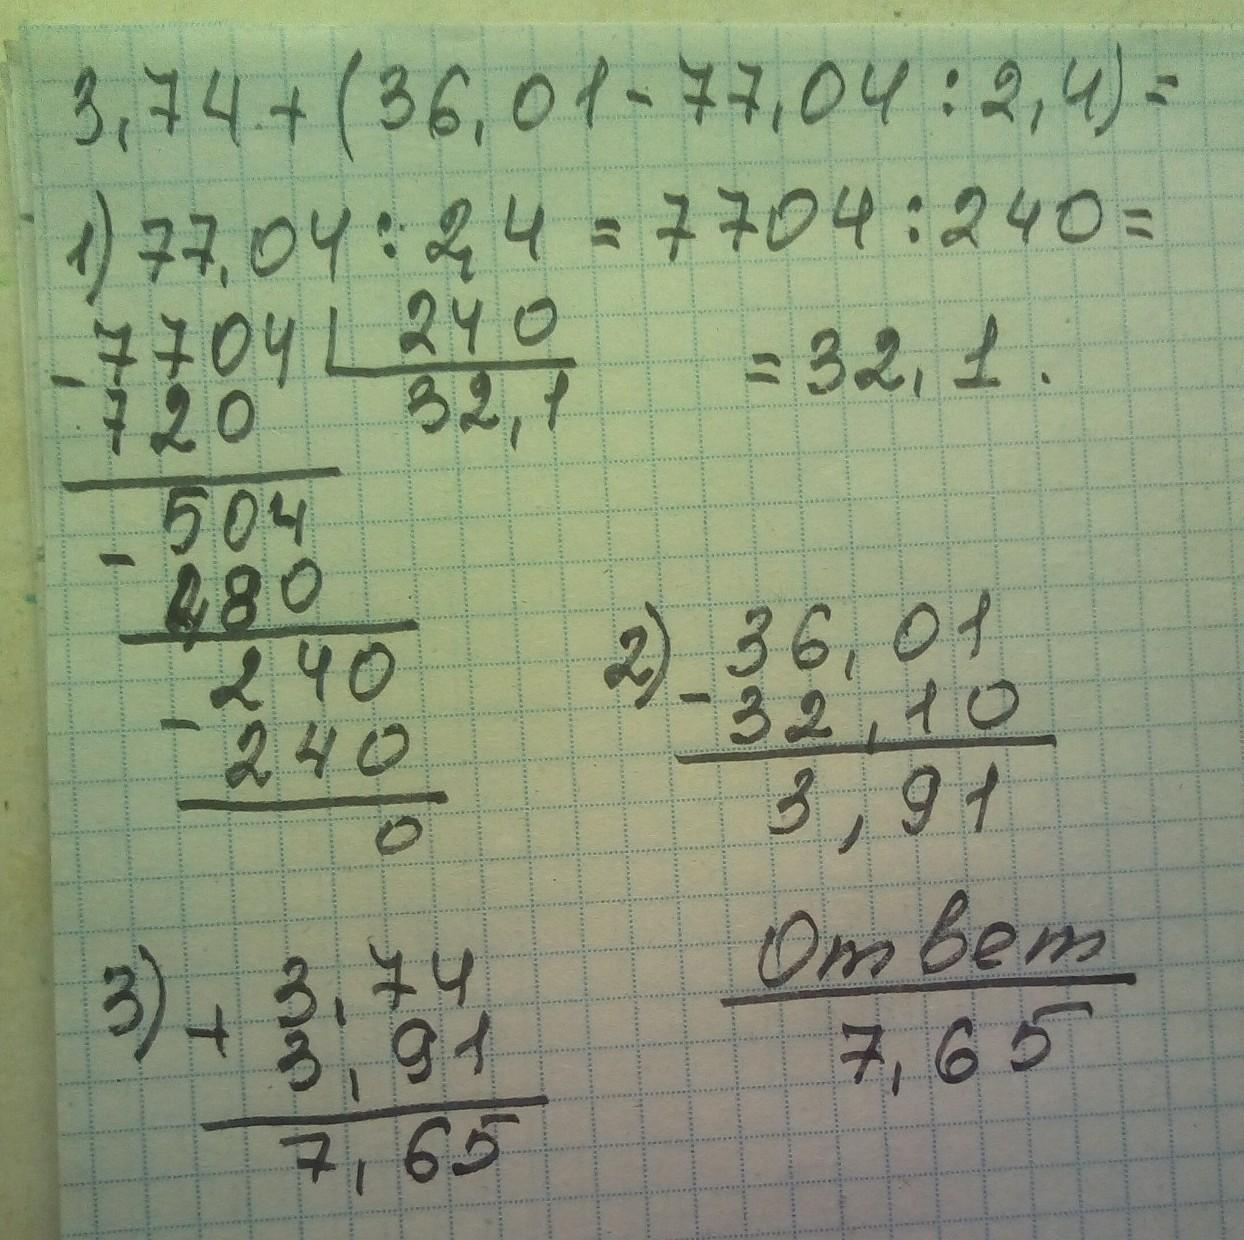 3,74 + (36,01 - 77,04 : 2,4) =
1) 77,04 : 2,4 = 7704 : 240 =
= 32,1.
- 7704 | 240
720 32,1
504
- 480
240
- 240
0
2) 36,01
- 32,10
3,91
3) 3,74
+ 3,91
7,65
Ответ
7,65